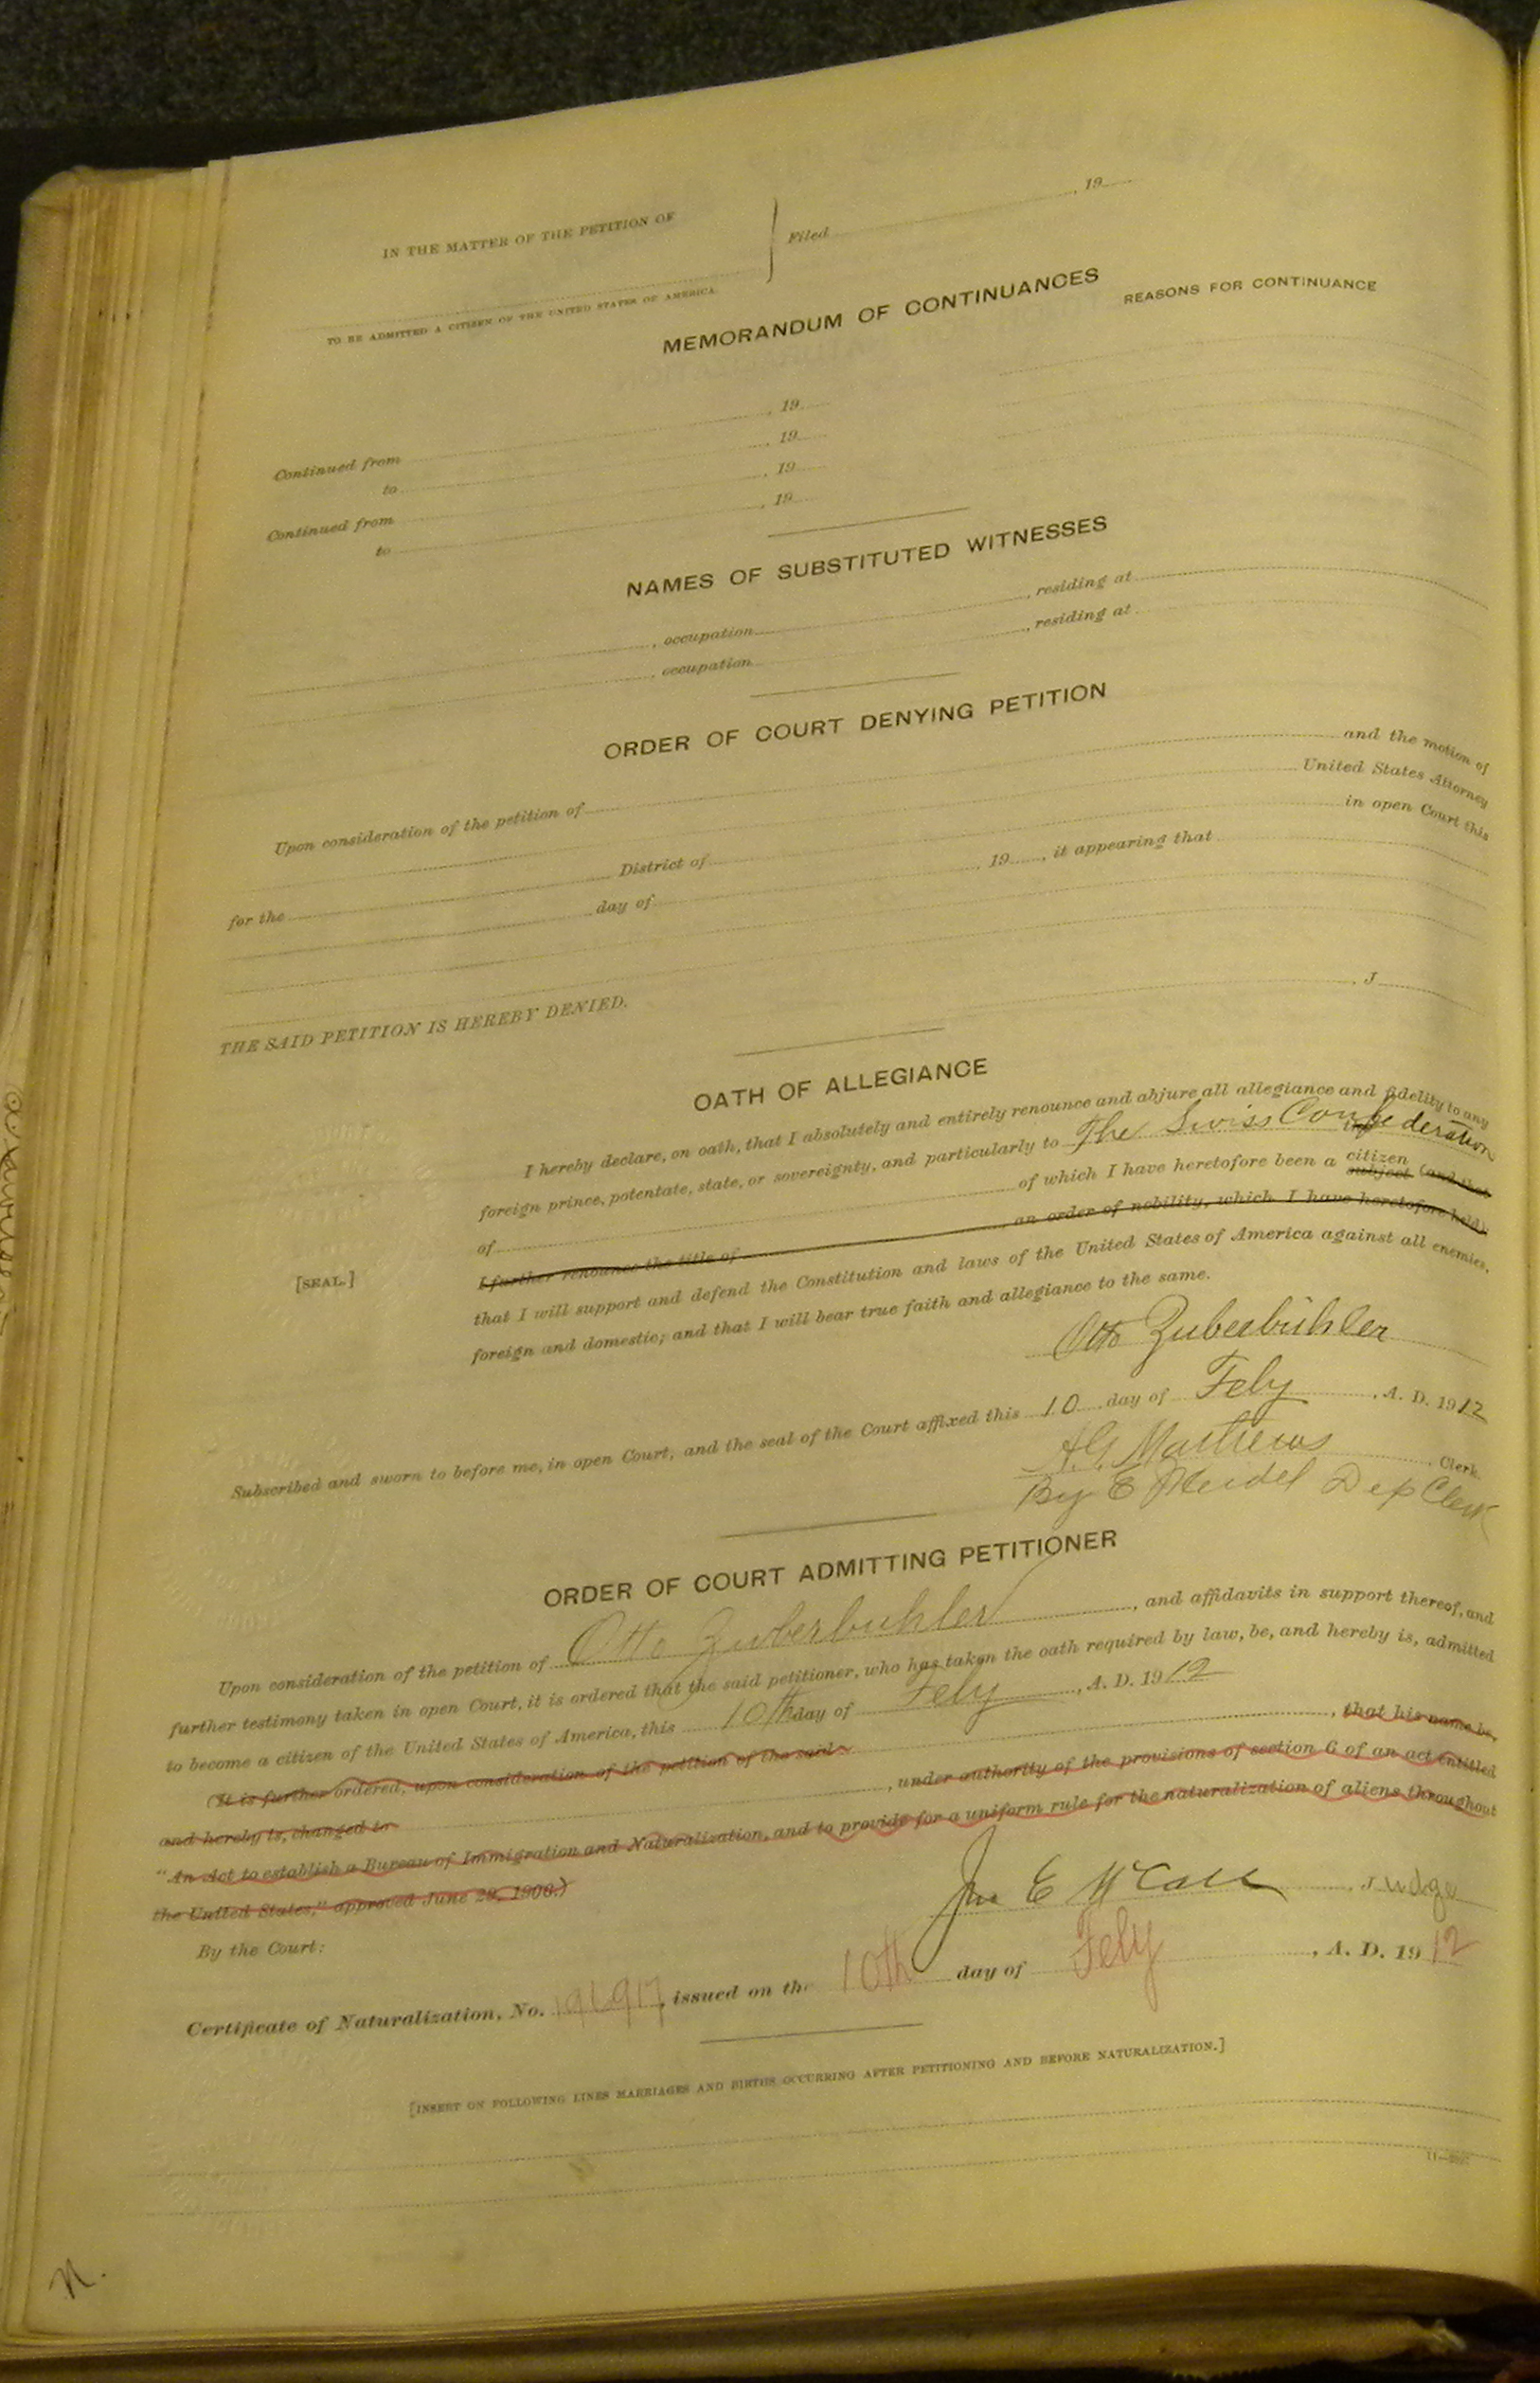 IN THE MATTER OF THE PETITION OF
Filed , 19
TO BE ADMITTED A CITIZEN OF THE UNITED STATES OF AMERICA
MEMORANDUM OF CONTINUANCES
REASONS FOR CONTINUANCE
Continued from , 19
to , 19
Continued from , 19
to , 19
NAMES OF SUBSTITUTED WITNESSES
, occupation , residing at
, occupation , residing at
ORDER OF COURT DENYING PETITION
Upon consideration of the petition of and the motion of
United States Attorney
for the District of in open Court this
day of , 19 , it appearing that
THE SAID PETITION IS HEREBY DENIED.
, J
OATH OF ALLEGIANCE
I hereby declare, on oath, that I absolutely and entirely renounce and abjure all allegiance and fidelity to any
foreign prince, potentate, state, or sovereignty, and particularly to The Swiss Confederation
of of which I have heretofore been a citizen subject (and that
I further renounce the title of , an order of nobility, which I have heretofore held);
[SEAL.]
that I will support and defend the Constitution and laws of the United States of America against all enemies,
foreign and domestic; and that I will bear true faith and allegiance to the same.
Otto Zuberbühler
Subscribed and sworn to before me, in open Court, and the seal of the Court affixed this 10 day of Feby , A. D. 1912
A.G. Mathews , Clerk.
By E Dep Clerk
ORDER OF COURT ADMITTING PETITIONER
Upon consideration of the petition of Otto Zuberbuhler , and affidavits in support thereof, and
further testimony taken in open Court, it is ordered that the said petitioner, who has taken the oath required by law, be, and hereby is, admitted
to become a citizen of the United States of America, this 10th day of Feby , A. D. 1912
(It is further ordered, upon consideration of the petition of the said , that his name be,
and hereby is, changed to , under authority of the provisions of section 6 of an act entitled
"An Act to establish a Bureau of Immigration and Naturalization, and to provide for a uniform rule for the naturalization of aliens throughout
the United States," approved June 29, 1906.)
By the Court:
Jno E McCall , Judge
Certificate of Naturalization, No. 196917, issued on the 10th day of Feby , A. D. 1912
[INSERT ON FOLLOWING LINES MARRIAGES AND BIRTHS OCCURRING AFTER PETITIONING AND BEFORE NATURALIZATION.]
n.